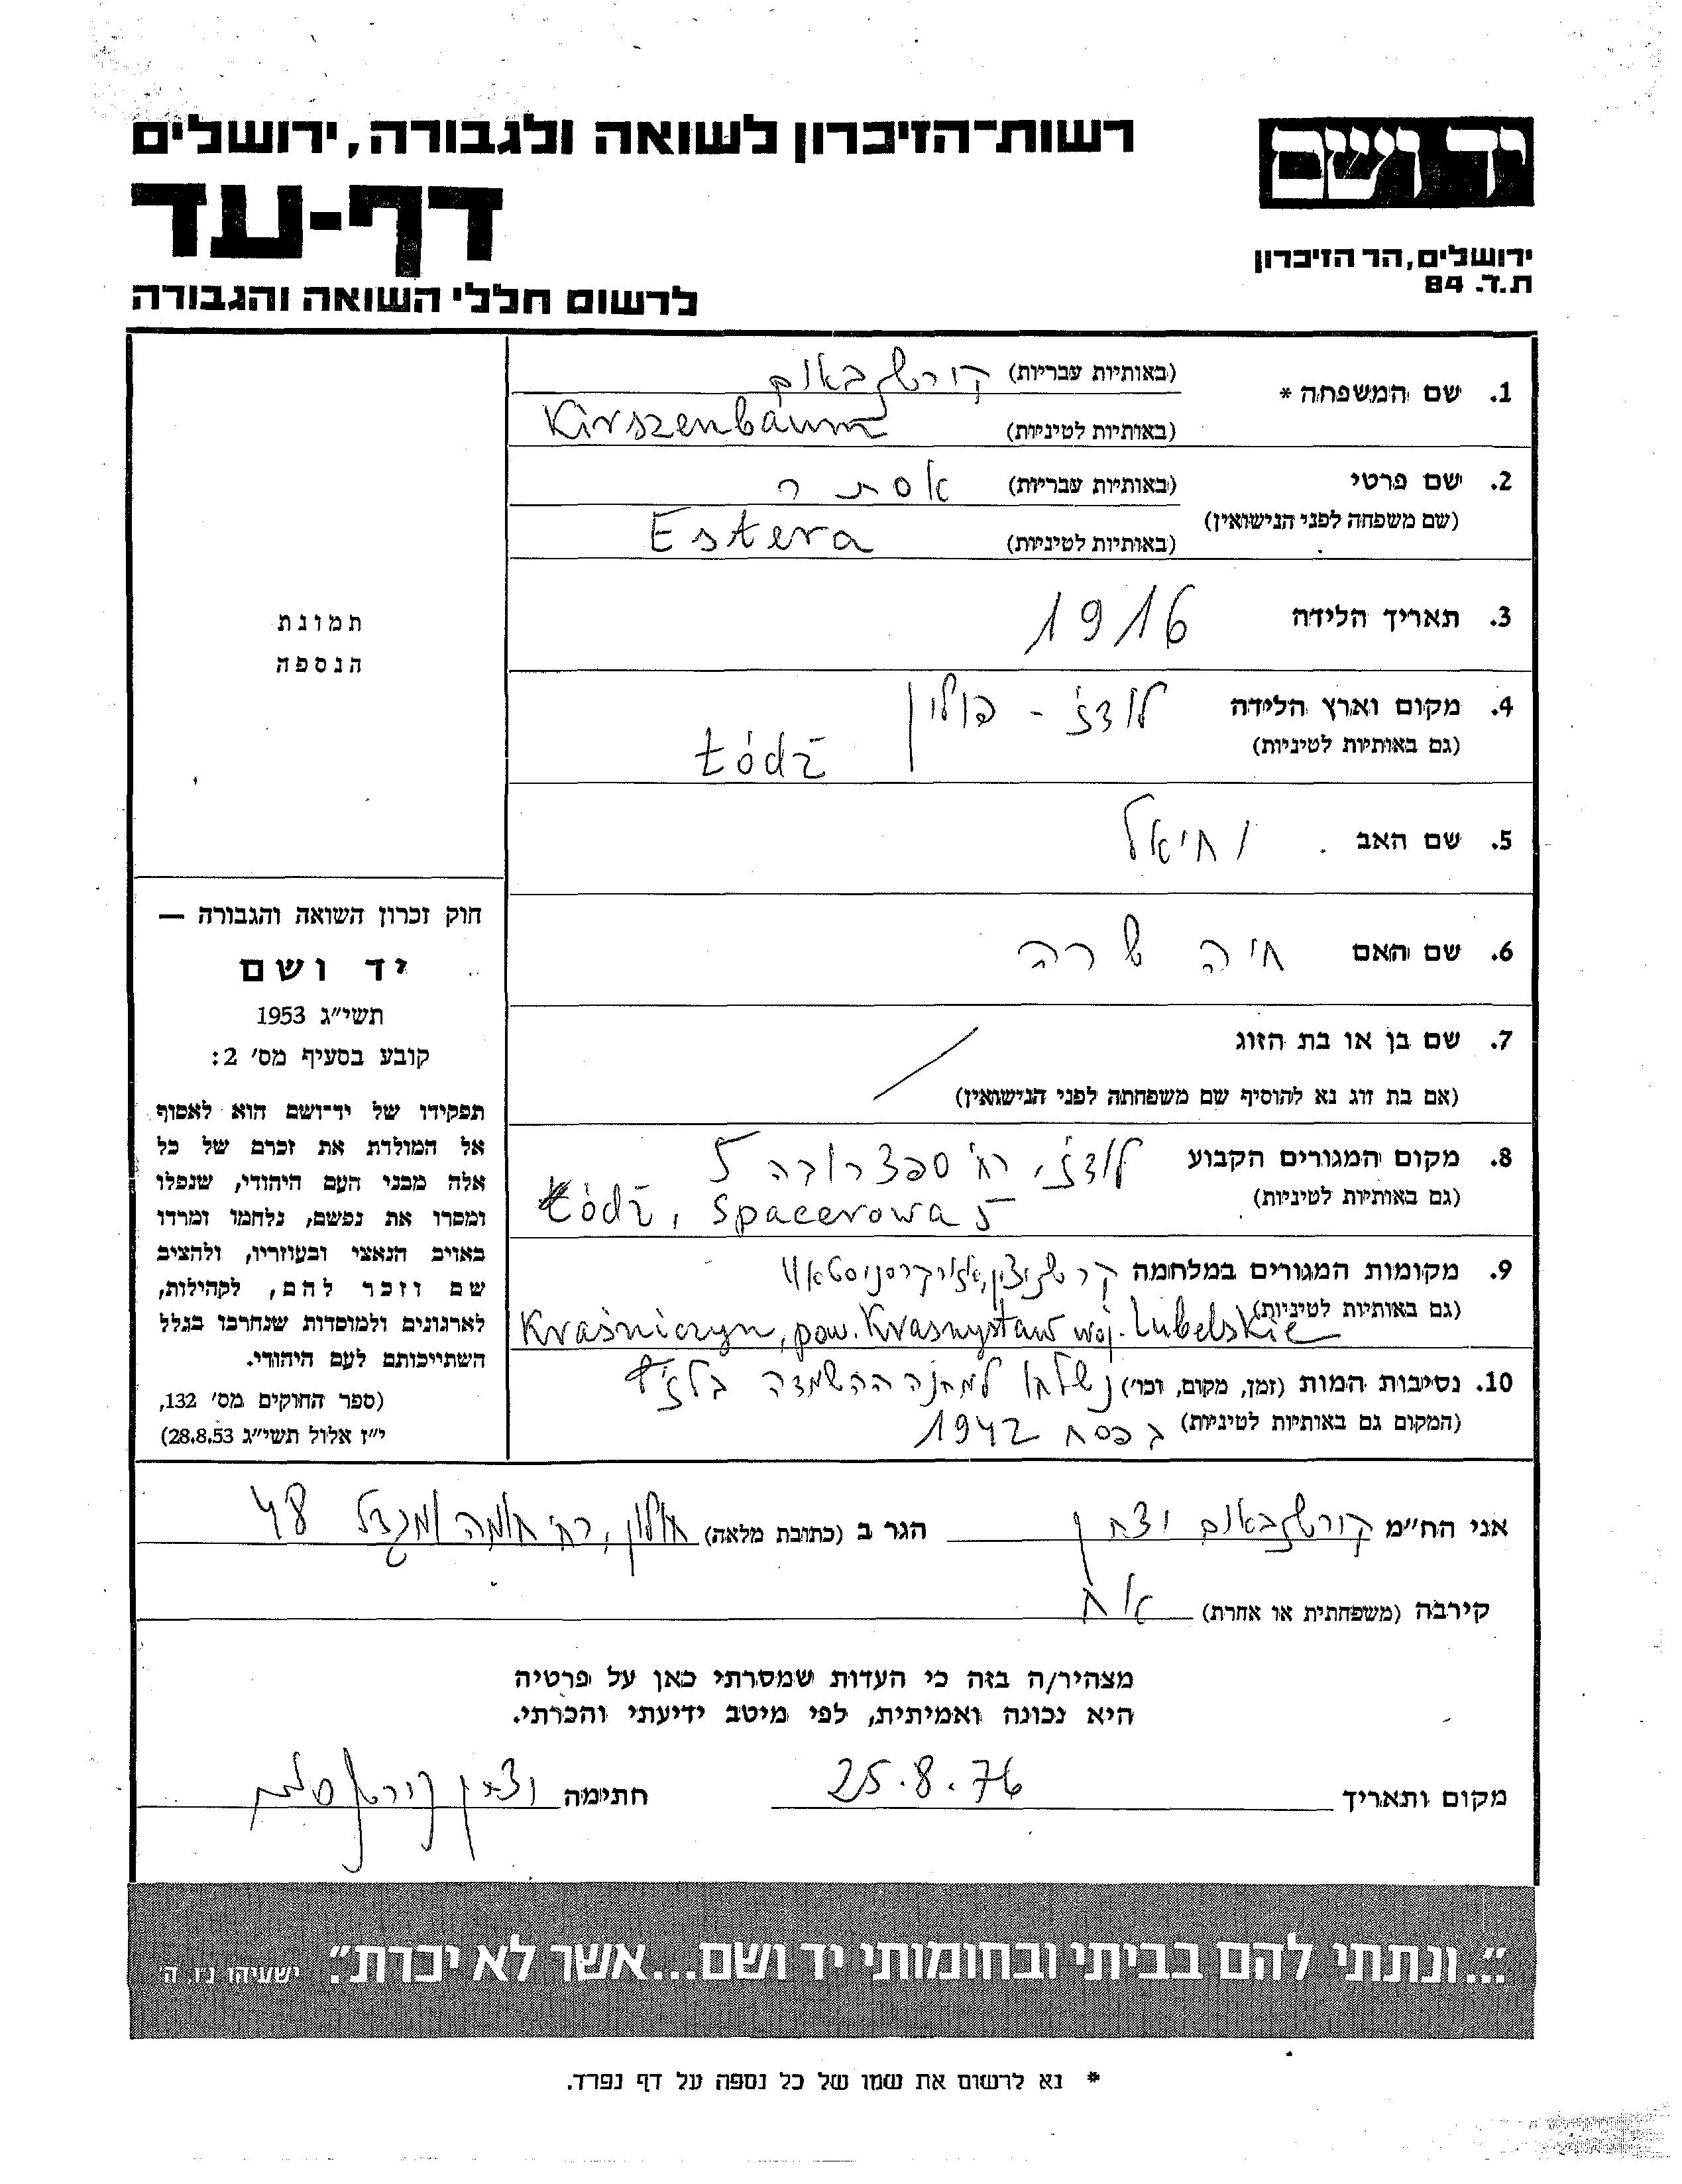 יד ושם
ירושלים, הר הזיכרון
ת.ד. 84
רשות־הזיכרון לשואה ולגבורה, ירושלים
דף-עד
לרשום חללי השואה והגבורה
1. שם המשפחה * (באותיות עבריות) קורשנבאום
(באותיות לטיניות) Kirszenbaum
2. שם פרטי (באותיות עבריות) אסתר
(שם משפחה לפני הנישואין) (באותיות לטיניות) Estera
3. תאריך הלידה 1916
4. מקום וארץ הלידה לודז' - פולין
(גם באותיות לטיניות) Łódź
5. שם האב יחיאל
6. שם האם חיה שרה
7. שם בן או בת הזוג /
(אם בת זוג נא להוסיף שם משפחתה לפני הנישואין)
8. מקום המגורים הקבוע לודז', רח' ספצרובה 5
(גם באותיות לטיניות) Łódź, Spacerowa 5
9. מקומות המגורים במלחמה
(גם באותיות לטיניות) Kraśniczyn, pow. Krasnystaw woj. Lubelskie
10. נסיבות המות (זמן, מקום, וכו') נשלחו למחנה ההשמדה
(המקום גם באותיות לטיניות) בפסח 1942
תמונת
הנספה
חוק זכרון השואה והגבורה —
יד ושם
תשי״ג 1953
קובע בסעיף מס׳ 2:
תפקידו של יד־ושם הוא לאסוף
אל המולדת את זכרם של כל
אלה מבני העם היהודי, שנפלו
ומסרו את נפשם, נלחמו ומרדו
באויב הנאצי ובעוזריו, ולהציב
שם וזכר להם, לקהילות,
לארגונים ולמוסדות שנחרבו בגלל
השתייכותם לעם היהודי.
(ספר החוקים מס׳ 132,
י״ז אלול תשי״ג 28.8.53)
אני הח״מ קורשנבאום הגר ב (כתובת מלאה) חולון, רח' חומה ומגדל 48
קירבה (משפחתית או אחרת) אח
מצהיר/ה בזה כי העדות שמסרתי כאן על פרטיה
היא נכונה ואמיתית, לפי מיטב ידיעתי והכרתי.
מקום ותאריך 25.8.76 חתימה
"...ונתתי להם בביתי ובחומותי יד ושם...אשר לא יכרת". ישעיהו נ״ו, ה'
* נא לרשום את שמו של כל נספה על דף נפרד.